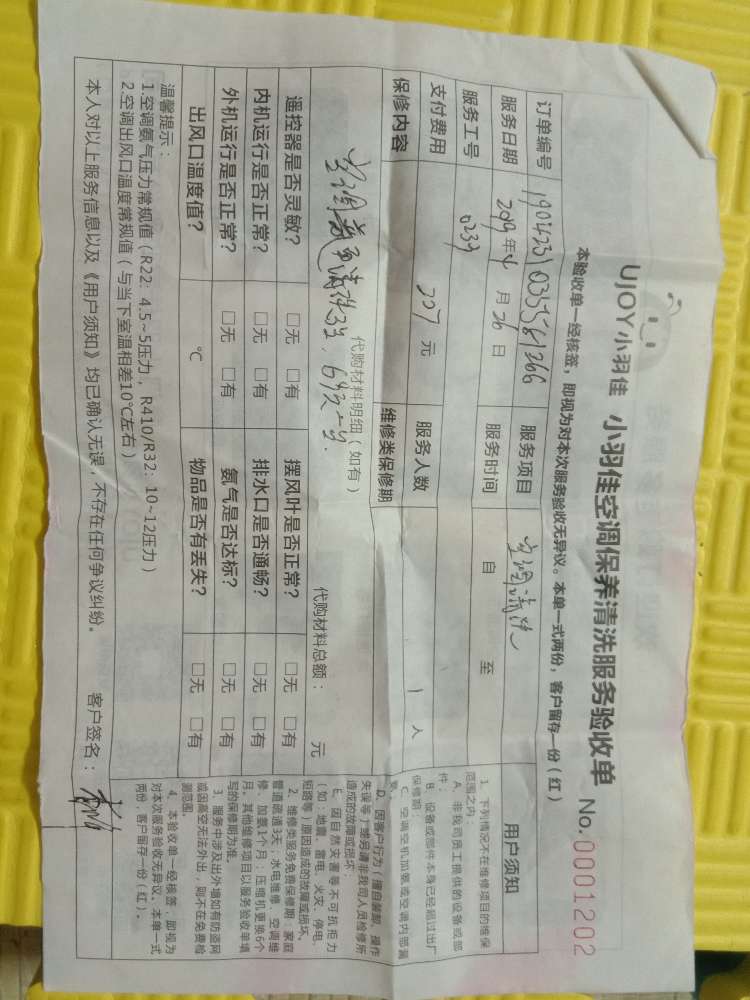 UJOY小羽佳 小羽佳空调保养清洗服务验收单 No.0001202
本验收单一经核签，即视为对本次服务验收无异议。本单一式两份，客户留存一份（红）
订单编号 服务项目 空调清洗
服务日期 2019年4月26日 服务时间 自 至
服务工号 0233
支付费用 207元 服务人数 1人
保修内容 维修类保修期
代购材料明细（如有）
代购材料总额： 元
遥控器是否灵敏？ □无 □有 摆风叶是否正常？ □无 □有
内机运行是否正常？ □无 □有 排水口是否通畅？ □无 □有
外机运行是否正常？ □无 □有 氨气是否达标？ □无 □有
出风口温度值？ ℃ 物品是否有丢失？ □无 □有
温馨提示：
1.空调氨气压力常规值（R22：4.5~5压力，R410/R32：10~12压力）
2.空调出风口温度常规值（与当下室温相差10℃左右）
本人对以上服务信息以及《用户须知》均已确认无误，不存在任何争议纠纷。 客户签名：
用户须知
1、下列情况不在维修项目的维保
范围之内：
A、非我司员工提供的设备或部
件；
B、设备或部件本身已经超过出厂
保修期；
C、空调空机加氨或空调内部漏
氨。
D、因客户行为（擅自装卸、操作
失误等）或另请非我司人员检修所
造成的故障或损坏。
E、因自然灾害等不可抗拒力
（如：地震、雷电、火灾、停电、
短路等）原因造成的故障或损坏。
2、维修类服务免费保修期：家庭
管道疏通3天；水电维修、空调维
修、加氨1个月；压缩机更换6个
月；其他维修项目以服务验收单填
写的保修期为准。
3、服务中涉及出外墙如有防盗网
或因高空无法外出，则不在免费检
测范围。
4、本验收单一经核签，即视为
对本次服务验收无异议，本单一式
两份，客户留存一份（红）。